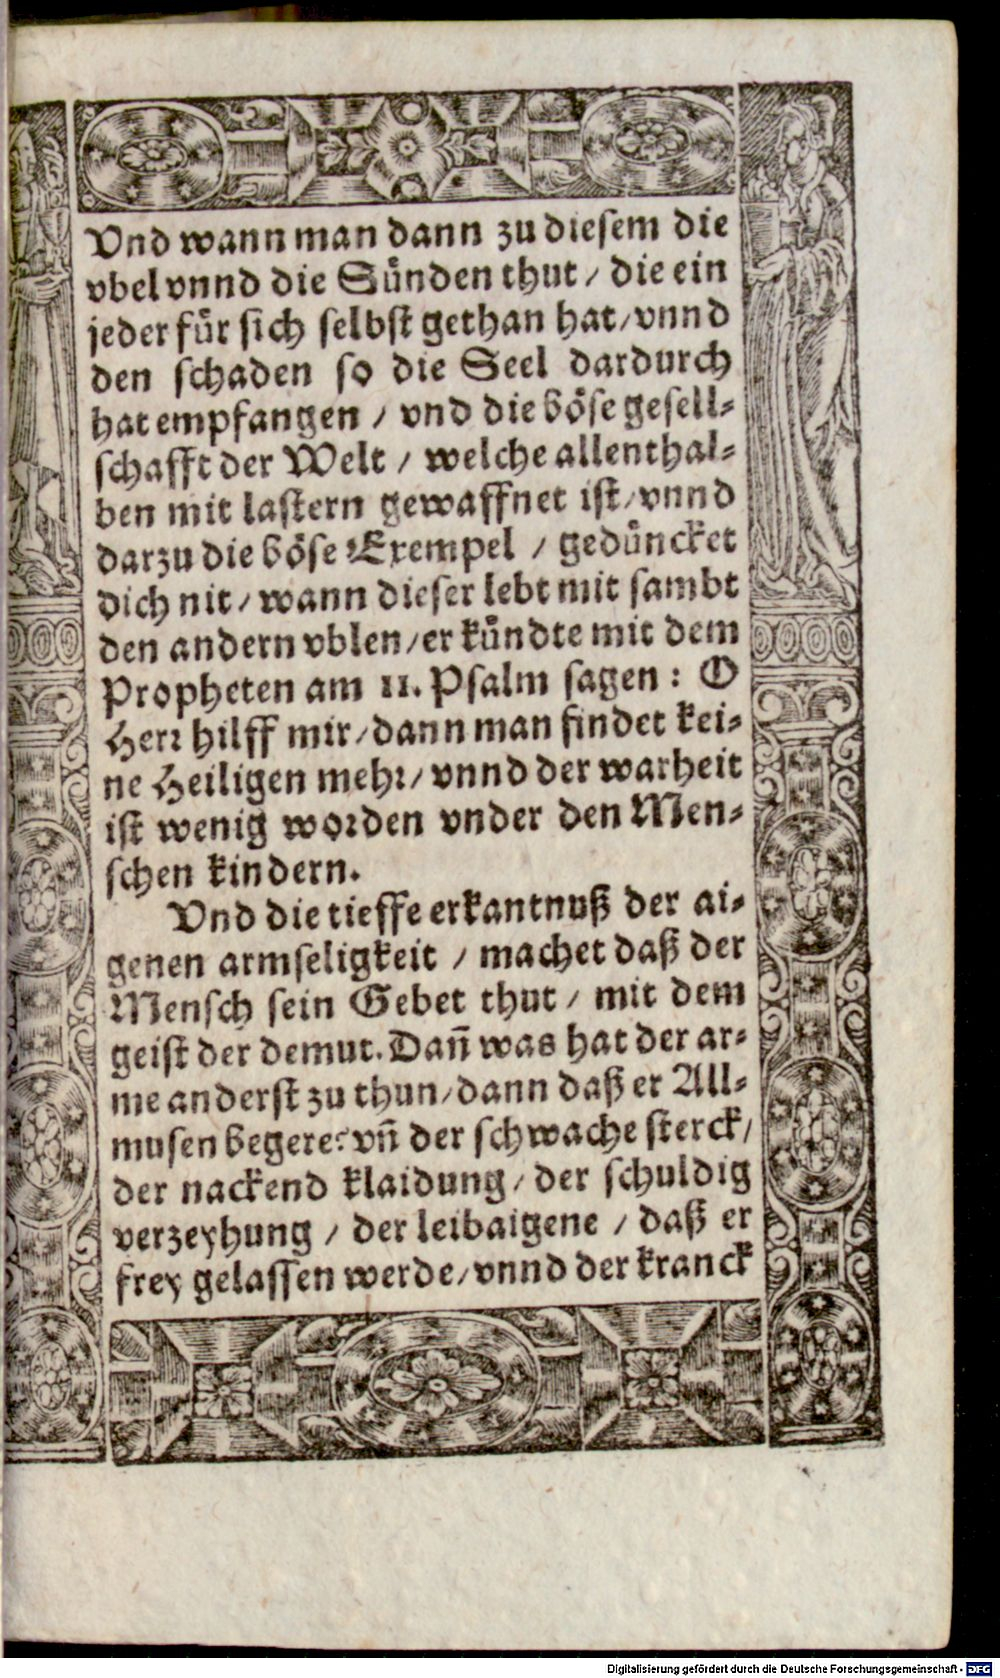 Vnd wann man dann zu diesem die
vbel vnnd die Sünden thut / die ein
jeder für sich selbst gethan hat / vnnd
den schaden so die Seel dardurch
hat empfangen / vnd die böse gesell-
schafft der Welt / welche allenthal-
ben mit lastern gewaffnet ist / vnnd
darzu die böse Exempel / gedüncket
dich nit / wann dieser lebt mit sambt
den andern vblen / er kündte mit dem
Propheten am 11. Psalm sagen: O
Herr hilff mir / dann man findet kei-
ne Heiligen mehr / vnnd der warheit
ist wenig worden vnder den Men-
schen kindern.
Vnd die tieffe erkantnuß der ai-
genen armseligkeit / machet daß der
Mensch sein Gebet thut / mit dem
geist der demut. Dañ was hat der ar-
me anderst zu thun / dann daß er All-
musen begere? vñ der schwache sterck /
der nackend klaidung / der schuldig
verzeyhung / der leibaigene / daß er
frey gelassen werde / vnnd der kranck
Digitalisierung gefördert durch die Deutsche Forschungsgemeinschaft - DFG